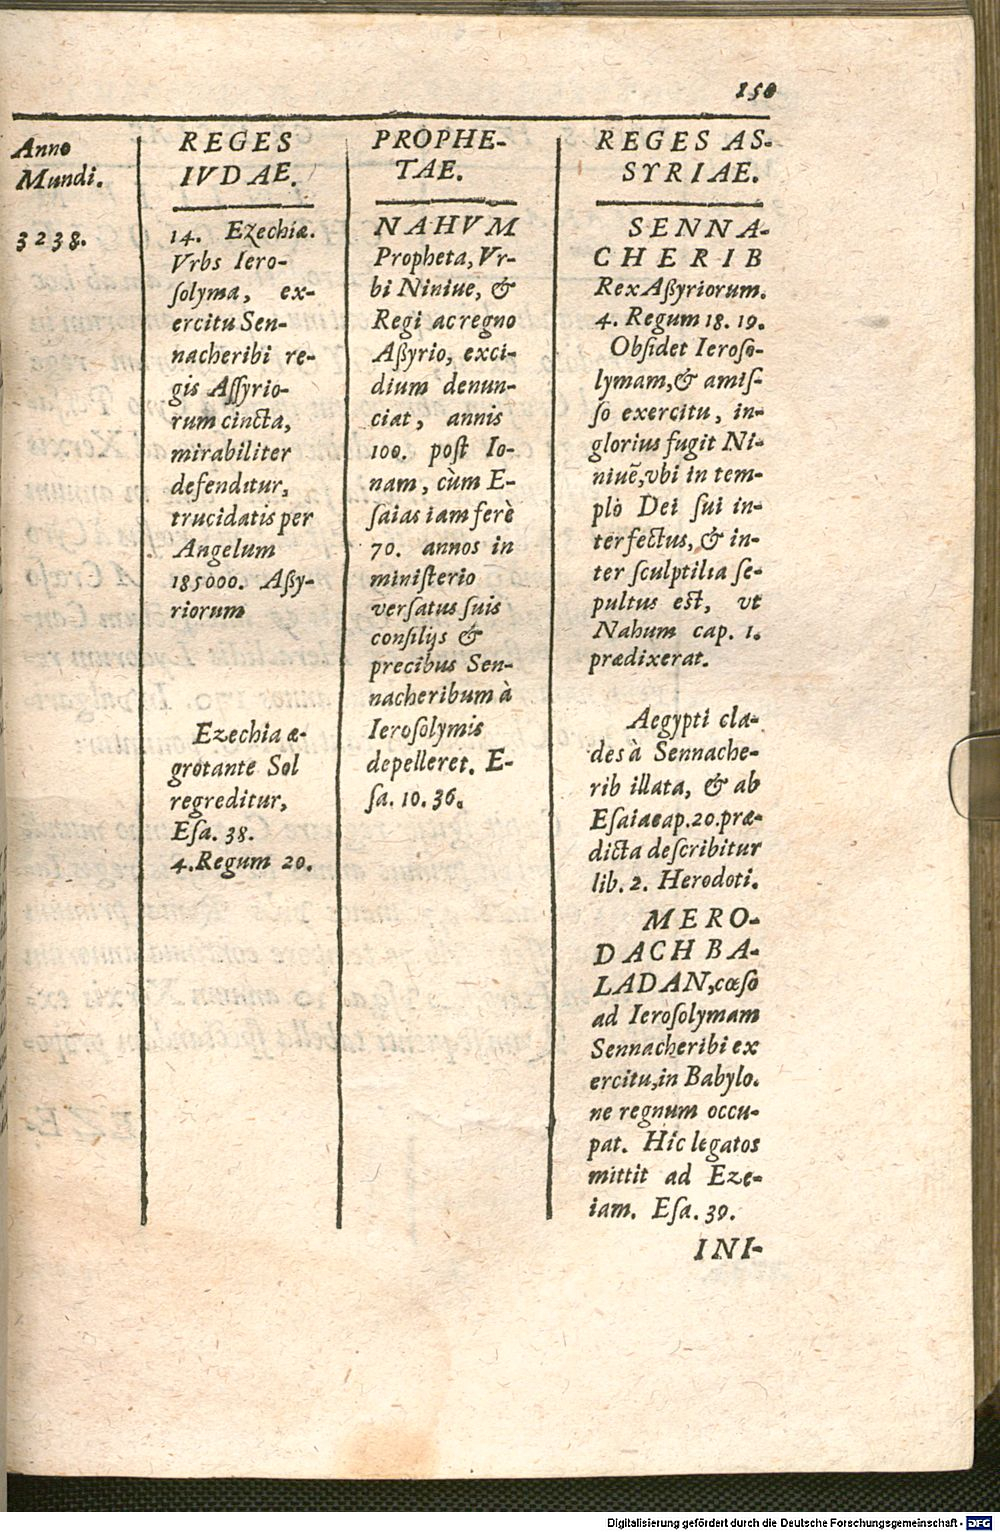 150
Anno
Mundi.
3238.
REGES
IVDAE.
14. Ezechiæ.
Vrbs Iero-
ſolyma, ex-
ercitu Sen-
nacheribi re-
gis Aſſyrio-
rum cincta,
mirabiliter
defenditur,
trucidatis per
Angelum
185000. Aßy-
riorum
Ezechia æ-
grotante Sol
regreditur,
Eſa. 38.
4. Regum 20.
PROPHE-
TAE.
NAHVM
Propheta, Vr-
bi Niniue, &
Regi ac regno
Aßyrio, exci-
dium denun-
ciat, annis
100. poſt Io-
nam, cùm E-
ſaias iam ferè
70. annos in
miniſterio
verſatus ſuis
conſilijs &
precibus Sen-
nacheribum à
Ieroſolymis
depelleret. E-
ſa. 10. 36.
REGES AS-
SYRIAE.
SENNA-
CHERIB
Rex Aßyriorum.
4. Regum 18. 19.
Obſidet Ieroſo-
lymam, & amiſ-
ſo exercitu, in-
glorius fugit Ni-
niuē, vbi in tem-
plo Dei ſui in-
terfectus, & in-
ter ſculptilia ſe-
pultus eſt, vt
Nahum cap. 1.
prædixerat.
Aegypti cla-
des à Sennache-
rib illata, & ab
Eſaia cap. 20. præ-
dicta deſcribitur
lib. 2. Herodoti.
MERO-
DACH BA-
LADAN, cæſo
ad Ieroſolymam
Sennacheribi ex
ercitu, in Babylo-
ne regnum occu-
pat. Hic legatos
mittit ad Eze-
iam. Eſa. 39.
INI-
Digitalisierung gefördert durch die Deutsche Forschungsgemeinschaft - DFG